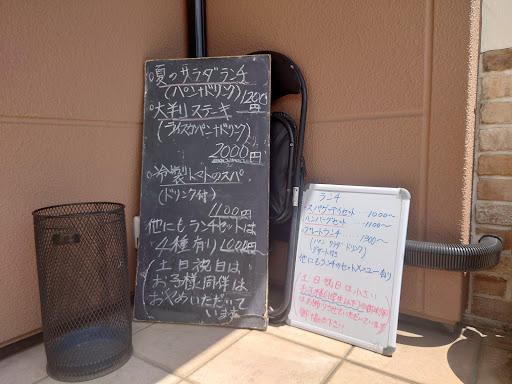 夏のサラダランチ
(パン+ドリンク) 1200円
大判ステーキ
(ライスorパン+ドリンク)
2000円
冷製トマトのスパ
(ドリンク付)
1100円
他にもランチセットは
4種有り 1000円~
土日祝日は
お子様同伴は
お断めいただいて
います。
ランチ
スパゲッティセット 1000~
ハンバーグセット 1100~
プレートランチ 1300~
(パン サラダ ドリンク)
デザート付
他にもランチのセットメニュー有り
土日祝日は小さい
お断りさせていただいています